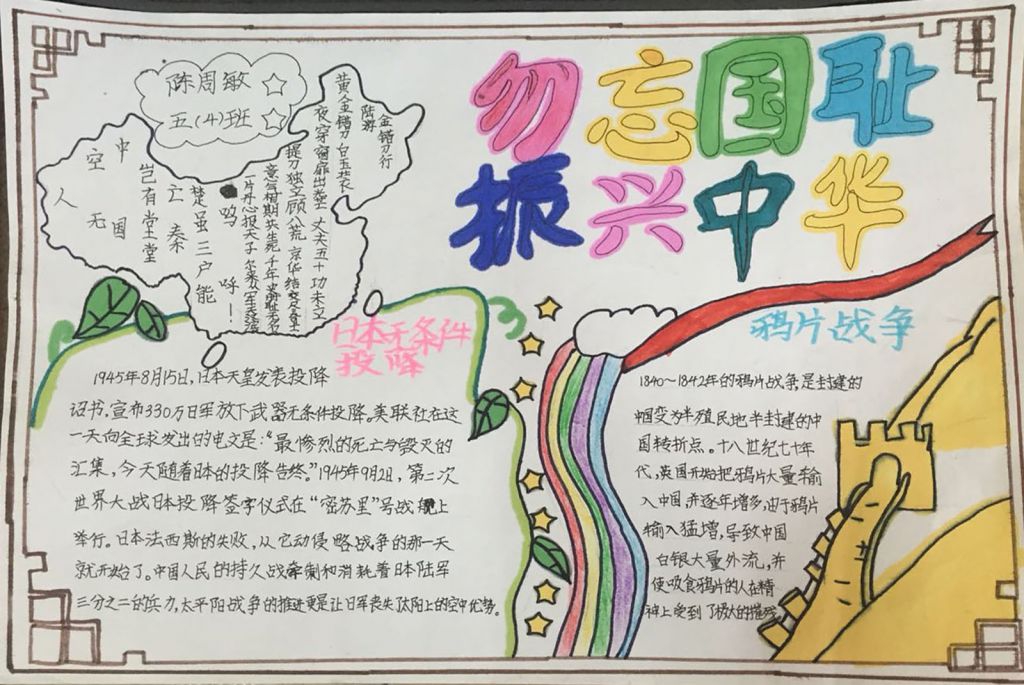 勿忘国耻
振兴中华
陈周敏
五(4)班
金错刀行
陆游
黄金错刀白玉装
夜穿窗扉出
丈夫五十功未立
提刀独立顾八荒
京华结交
意气相期共生死
千年
一片丹心报天子
尔来从军
呜呼！
楚虽三户能
亡秦
岂有堂堂
中国
空无
人
日本无条件
投降
1945年8月15日,日本天皇发表投降
诏书.宣布330万日军放下武器无条件投降.美联社在这
一天向全球发出的电文是:“最惨烈的死亡与毁灭的
汇集，今天随着日本的投降告终.”1945年9月2日，第二次
世界大战日本投降签字仪式在“密苏里”号战舰上
举行。日本法西斯的失败，从它动侵略战争的那一天
就开始了。中国人民的持久战牵制和消耗着日本陆军
三分之二的兵力,太平阳战争的推进更是让日军丧失了太阳上的空中优势。
鸦片战争
1840～1842年的鸦片战争是封建的
中国变为半殖民地半封建的中
国转折点。十八世纪七十年
代，英国开始把鸦片大量输
入中国,并逐年增多,由于鸦片
输入猛增,导致中国
白银大量外流,并
使吸食鸦片的人在精
神上受到了极大的摧残